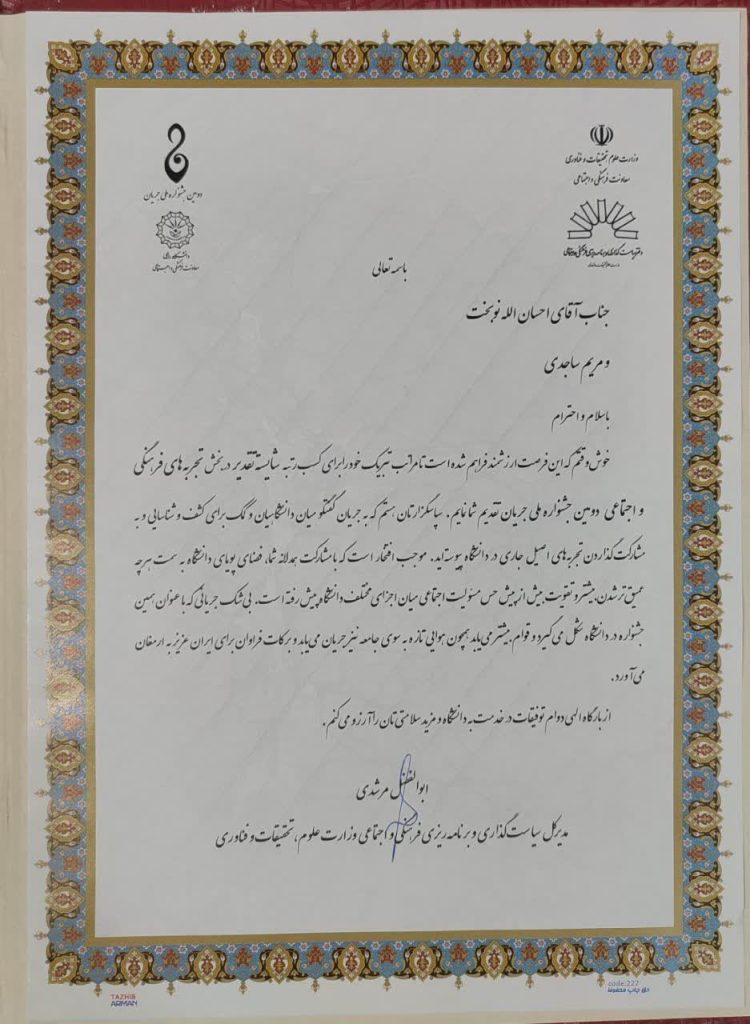 وزارت علوم تحقیقات و فناوری
معاونت فرهنگی و اجتماعی
دومین جشنواره ملی جریان
معاونت فرهنگی و اجتماعی
باسمه تعالی
جناب آقای احسان الله نوبخت
و مریم ساجدی
با سلام و احترام
خوش وقتم که این فرصت ارزشمند فراهم شده است تا مراتب تبریک خود را برای کسب رتبه شایسته تقدیر در بخش تجربه های فرهنگی
و اجتماعی دومین جشنواره ملی جریان تقدیم شما نمایم. سپاسگزارتان هستم که به جریان گفتگو میان دانشگاهیان و کمک برای کشف و شناسایی و به
مشارکت گذاردن تجربه های اصیل جاری در دانشگاه پیوسته اید. موجب افتخار است که با مشارکت همدلانه شما، فضای پویای دانشگاه به سمت هرچه
عمیق تر شدن، بیشتر و تقویت بیش از پیش حس مسئولیت اجتماعی میان اجزای مختلف دانشگاه پیش رفته است. بی شک جریانی که با عنوان همین
جشنواره در دانشگاه شکل می گیرد و قوام بیشتر می یابد همچون هوایی تازه به سوی جامعه نیز جریان می یابد و برکات فراوان برای ایران عزیز به ارمغان
می آورد.
از بارگاه الهی دوام توفیقات در خدمت به دانشگاه و مزید سلامتی تان را آرزو می کنم.
ابوالفضل مرشدی
مدیرکل سیاست گذاری و برنامه ریزی فرهنگی و اجتماعی وزارت علوم، تحقیقات و فناوری
TAZHIB
ARMAN
code:227
حق چاپ محفوظ